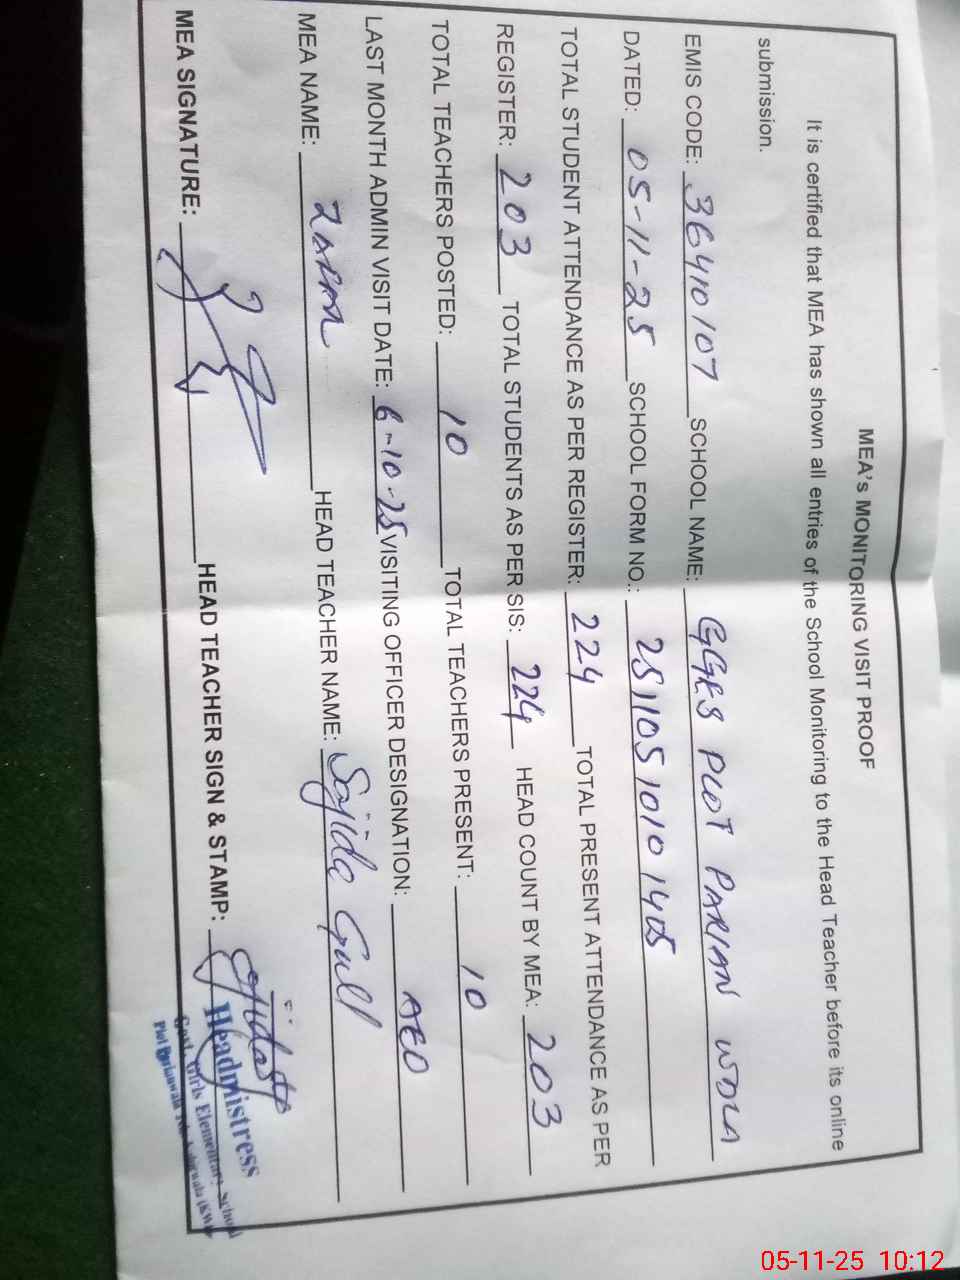 MEA's MONITORING VISIT PROOF
It is certified that MEA has shown all entries of the School Monitoring to the Head Teacher before its online
submission.
EMIS CODE: 36410107 SCHOOL NAME: GGES PLOT PARIAN WALA
DATED: 05-11-25 SCHOOL FORM NO.: 25110510101405
TOTAL STUDENT ATTENDANCE AS PER REGISTER: 224 TOTAL PRESENT ATTENDANCE AS PER
REGISTER: 203 TOTAL STUDENTS AS PER SIS: 224 HEAD COUNT BY MEA: 203
TOTAL TEACHERS POSTED: 10 TOTAL TEACHERS PRESENT: 10
LAST MONTH ADMIN VISIT DATE: 6-10-25 VISITING OFFICER DESIGNATION: AEO
MEA NAME: HEAD TEACHER NAME: Sajida Gull
MEA SIGNATURE: HEAD TEACHER SIGN & STAMP:
Headmistress
Govt. Girls Elementary School
05-11-25 10:12